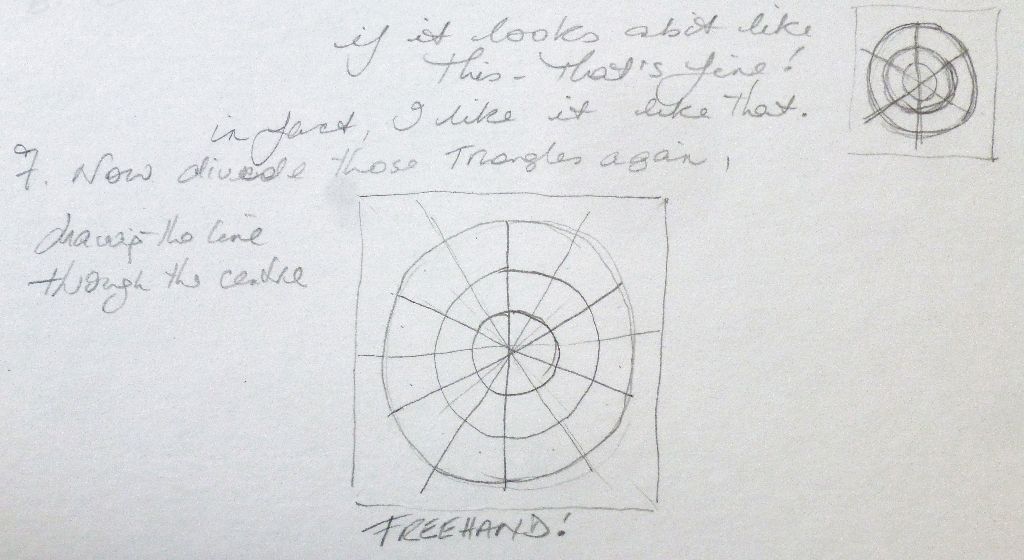 if it looks abit like
this - that's fine!
in fact, I like it like that.
7. Now divide those Triangles again,
drawing the line
through the centre
FREEHAND!